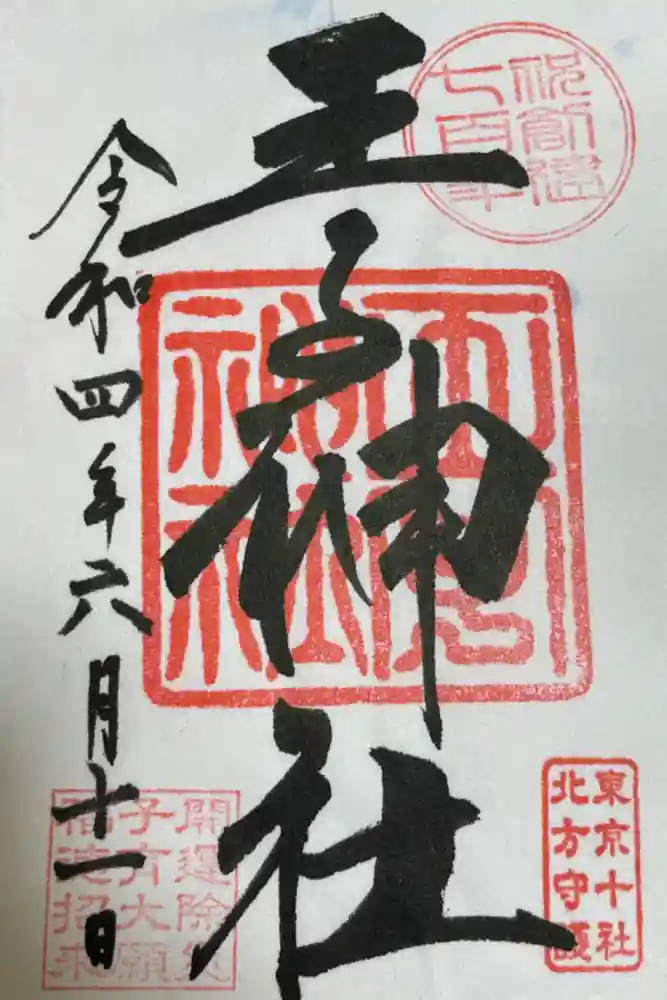 祝創建
七百年
王子神社
王子
神社
東京十社
北方守護
令和四年六月十一日
開運除災
子育大願
福徳招来